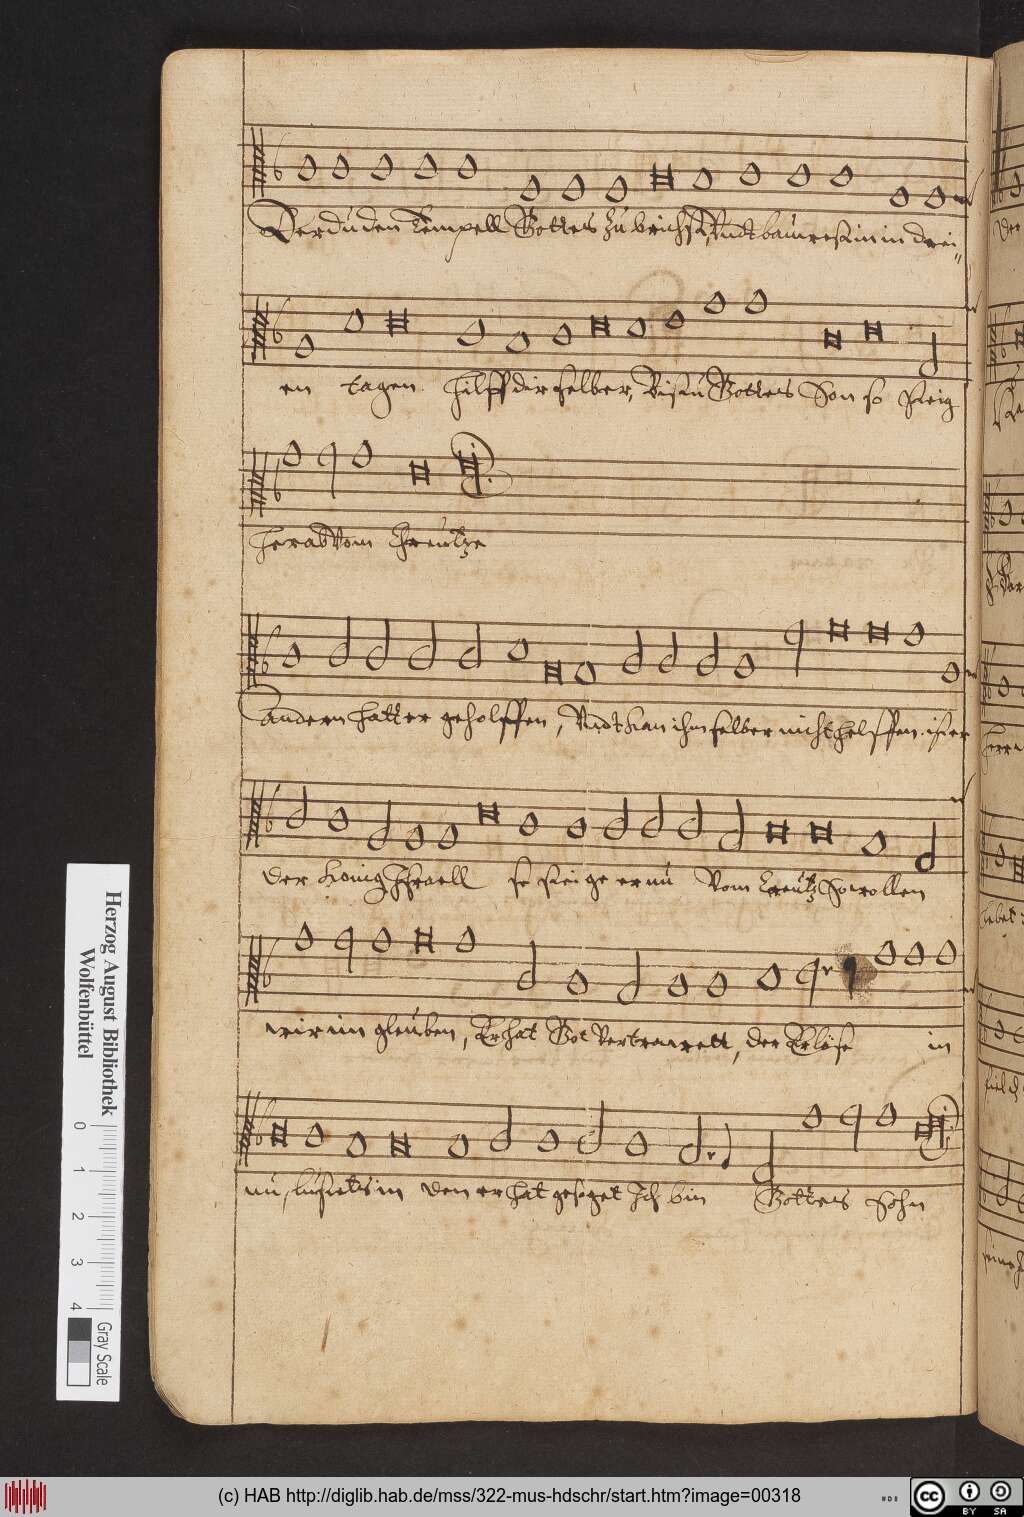 Der du den Tempell Gottes zu brichst, Undt bauwest in in drei=
en tagen hilff dir selber, Bistu Gottes Son so steig
herab Vom Chreutze
Andern hatt er geholffen, Undt kan ihm selber nicht helffen. ist er
der König Israell so steige er nu Vom Creutz So wollen
wir im gleuben, Er hat Got Vertrawett, der Erlöse in
nu, lüstets in den er hat geseget Ich bin Gottes Sohn
Herzog August Bibliothek
Wolfenbüttel
0 1 2 3 4
Gray Scale
(c) HAB http://diglib.hab.de/mss/322-mus-hdschr/start.htm?image=00318
cc BY SA